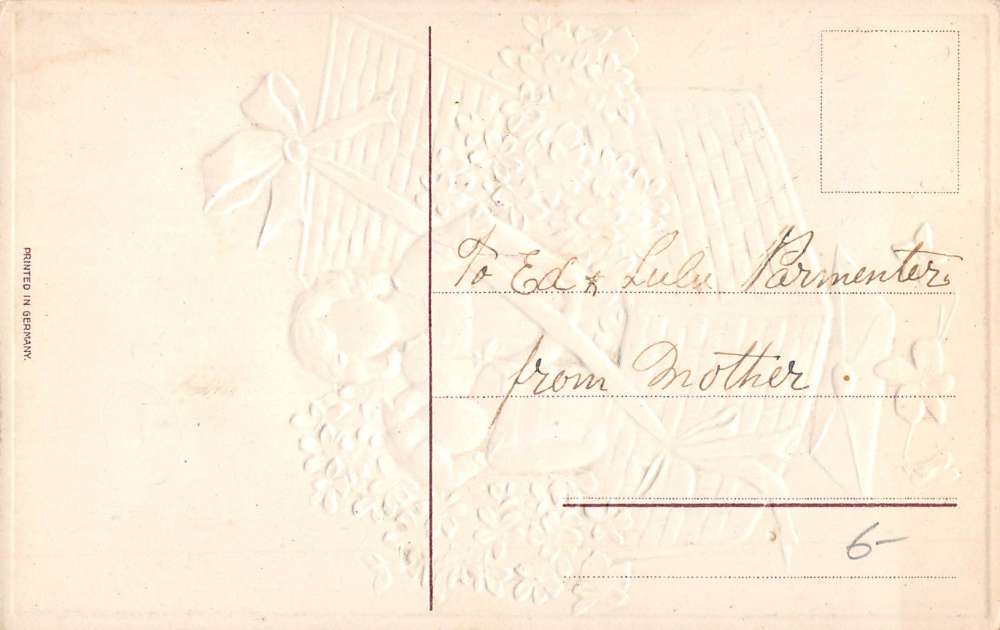 PRINTED IN GERMANY.
To Ed & Lulu Parmenter,
from Mother.
6-